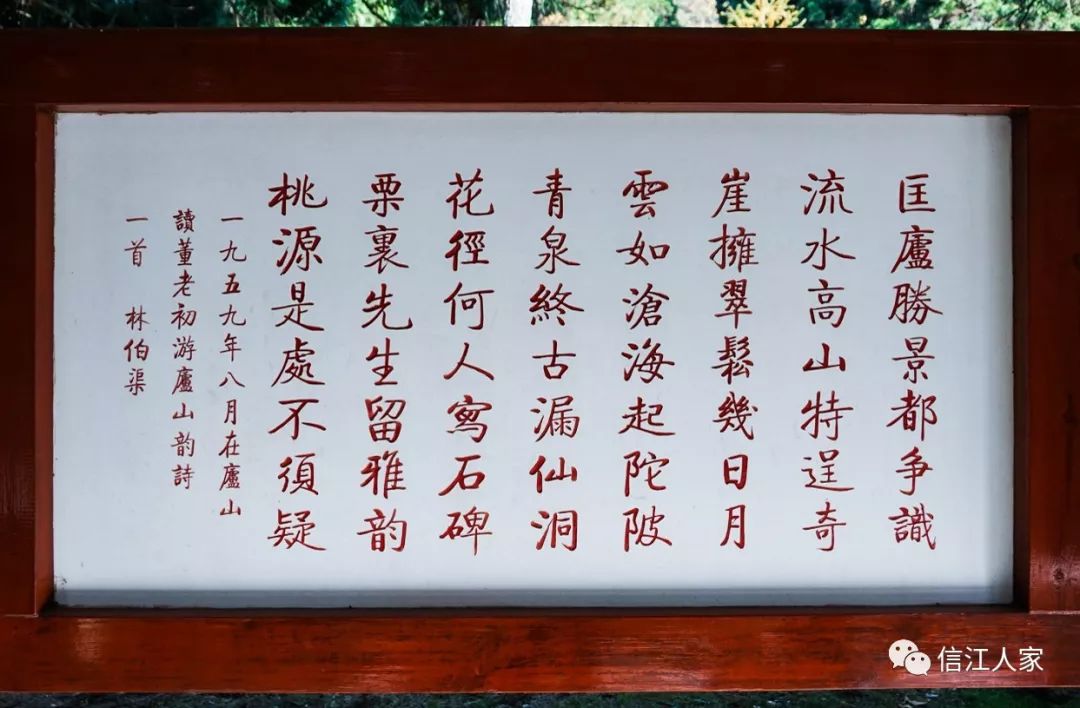 匡廬勝景都争識
流水高山特逞奇
崖擁翠鬆幾日月
雲如滄海起陀陂
青泉終古漏仙洞
花徑何人寫石碑
栗裏先生留雅韵
桃源是處不須疑
一九五九年八月在廬山
讀董老初游廬山韵詩
一首 林伯渠
信江人家